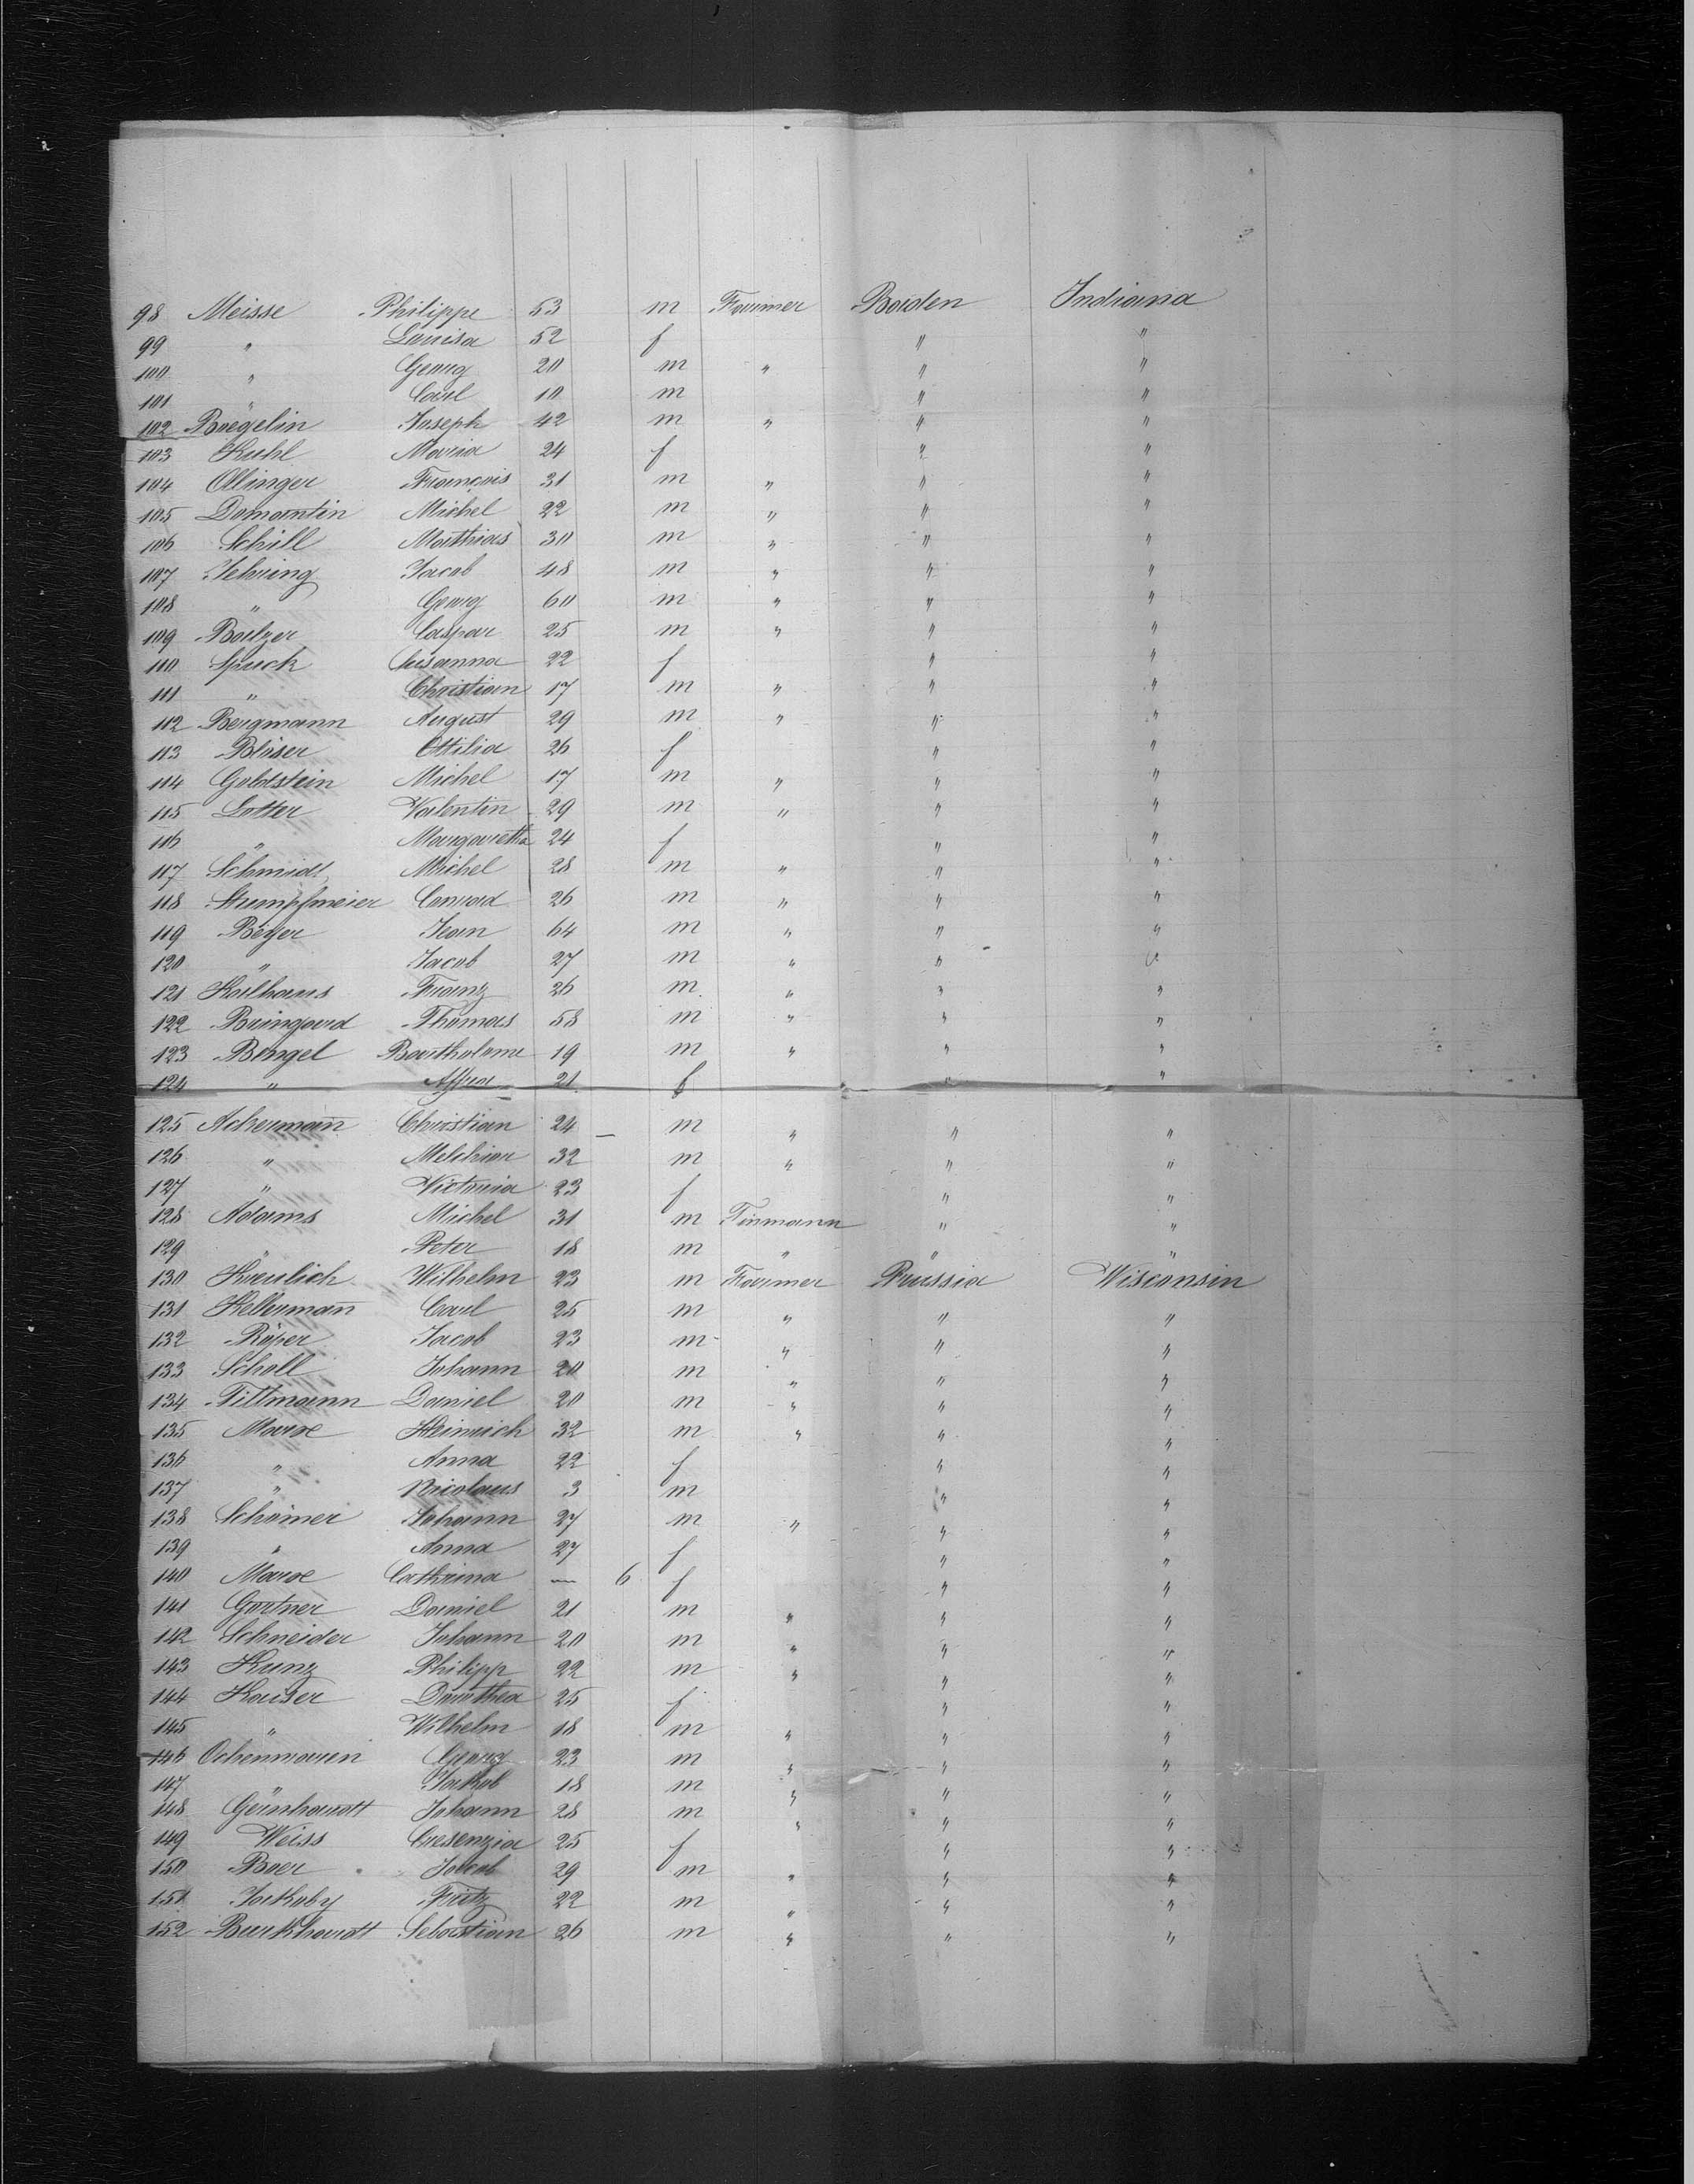 98 Meisse Philippe 53 m Farmer Baden Indiana
99 " Louisa 52 f " "
100 " Georg 20 m " " "
101 " Carl 10 m " "
102 Boegelin Joseph 42 m " " "
103 Kuhl Maria 24 f " "
104 Ollinger François 31 m " " "
105 Domantin Michel 22 m " " "
106 Schill Mathias 30 m " " "
107 Jehring Jacob 48 m " " "
108 " Georg 60 m " " "
109 Baltzer Caspar 25 m " " "
110 Spuck Susanna 22 f " "
111 " Christian 17 m " " "
112 Bergmann August 29 m " " "
113 Bläser Ottilia 26 f " "
114 Goldstein Michel 17 m " " "
115 Lotter Valentin 29 m " " "
116 " Margaretha 24 f " "
117 Schmidt Michel 28 m " " "
118 Stumpfmeier Conrad 26 m " " "
119 Beyer Jean 64 m " " "
120 " Jacob 27 m " " "
121 Kailhans Franz 26 m " " "
122 Bringard Thomas 58 m " " "
123 Bengel Bartholome 19 m " " "
124 " Affra 21 f " "
125 Ackermann Christian 24 m " " "
126 " Melchior 32 m " " "
127 " Victoria 23 f " "
128 Adams Michel 31 m Tinmann " "
129 " Peter 18 m " " "
130 Kreulich Wilhelm 23 m Farmer Prussia Wisconsin
131 Kellermann Carl 25 m " " "
132 Röper Jacob 23 m " " "
133 Scholl Johann 20 m " " "
134 Tillmann Daniel 20 m " " "
135 Marx Heinrich 32 m " " "
136 " Anna 22 f " "
137 " Nicolaus 3 m " "
138 Schömer Johann 27 m " " "
139 " Anna 27 f " "
140 Marx Cathrina — 6 f " "
141 Gartner Daniel 21 m " " "
142 Schneider Johann 20 m " " "
143 Kunz Philipp 22 m " " "
144 Kaiser Dorothea 25 f " "
145 " Wilhelm 18 m " " "
146 Georg 23 m " " "
147 " Jakob 18 m " " "
148 Gernhardt Johann 28 m " " "
149 Weiss Cresenzia 25 f " "
150 Baer Jacob 29 m " " "
151 Jackoby Fritz 22 m " " "
152 Burkhardt Sebastian 26 m " " "